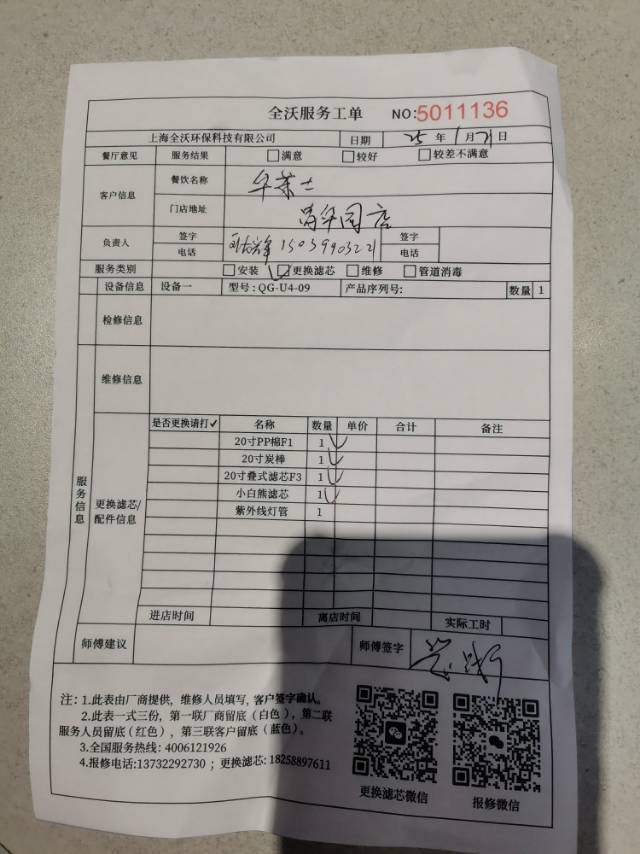 全沃服务工单 NO:5011136
上海全沃环保科技有限公司 日期 25 年 1 月 21 日
餐厅意见 服务结果 □满意 □较好 □较差不满意
客户信息 餐饮名称 华莱士
门店地址 店
负责人 签字 电话 15039903221 签字 电话
服务类别 □安装 ☑更换滤芯 □维修 □管道消毒
设备信息 设备一 型号:QG-U4-09 产品序列号: 数量 1
检修信息
维修信息
服务信息
更换滤芯/配件信息
是否更换请打✓ 名称 数量 单价 合计 备注
20寸PP棉F1 1 ✓
20寸炭棒 1 ✓
20寸叠式滤芯F3 1 ✓
小白熊滤芯 1 ✓
紫外线灯管 1
进店时间 离店时间 实际工时
师傅建议 师傅签字
注:1.此表由厂商提供,维修人员填写,客户签字确认。
2.此表一式三份,第一联厂商留底(白色),第二联
服务人员留底(红色),第三联客户留底(蓝色)。
3.全国服务热线:4006121926
4.报修电话:13732292730;更换滤芯:18258897611
更换滤芯微信 报修微信